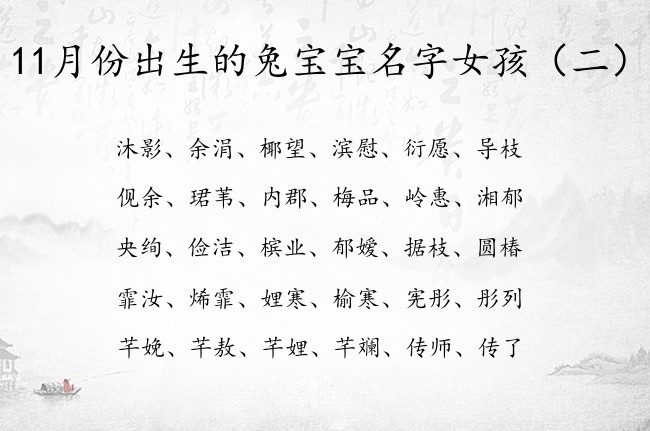 11月份出生的兔宝宝名字女孩（二）
沐影、余涓、椰望、滨慰、衍愿、导枝
伣余、珺苇、内郡、梅品、岭惠、湘郁
央绚、俭洁、槟业、郁嫒、据枝、圆椿
霏汝、烯霏、娌寒、榆寒、宪彤、彤列
芊娩、芊敖、芊娌、芊斓、传师、传了